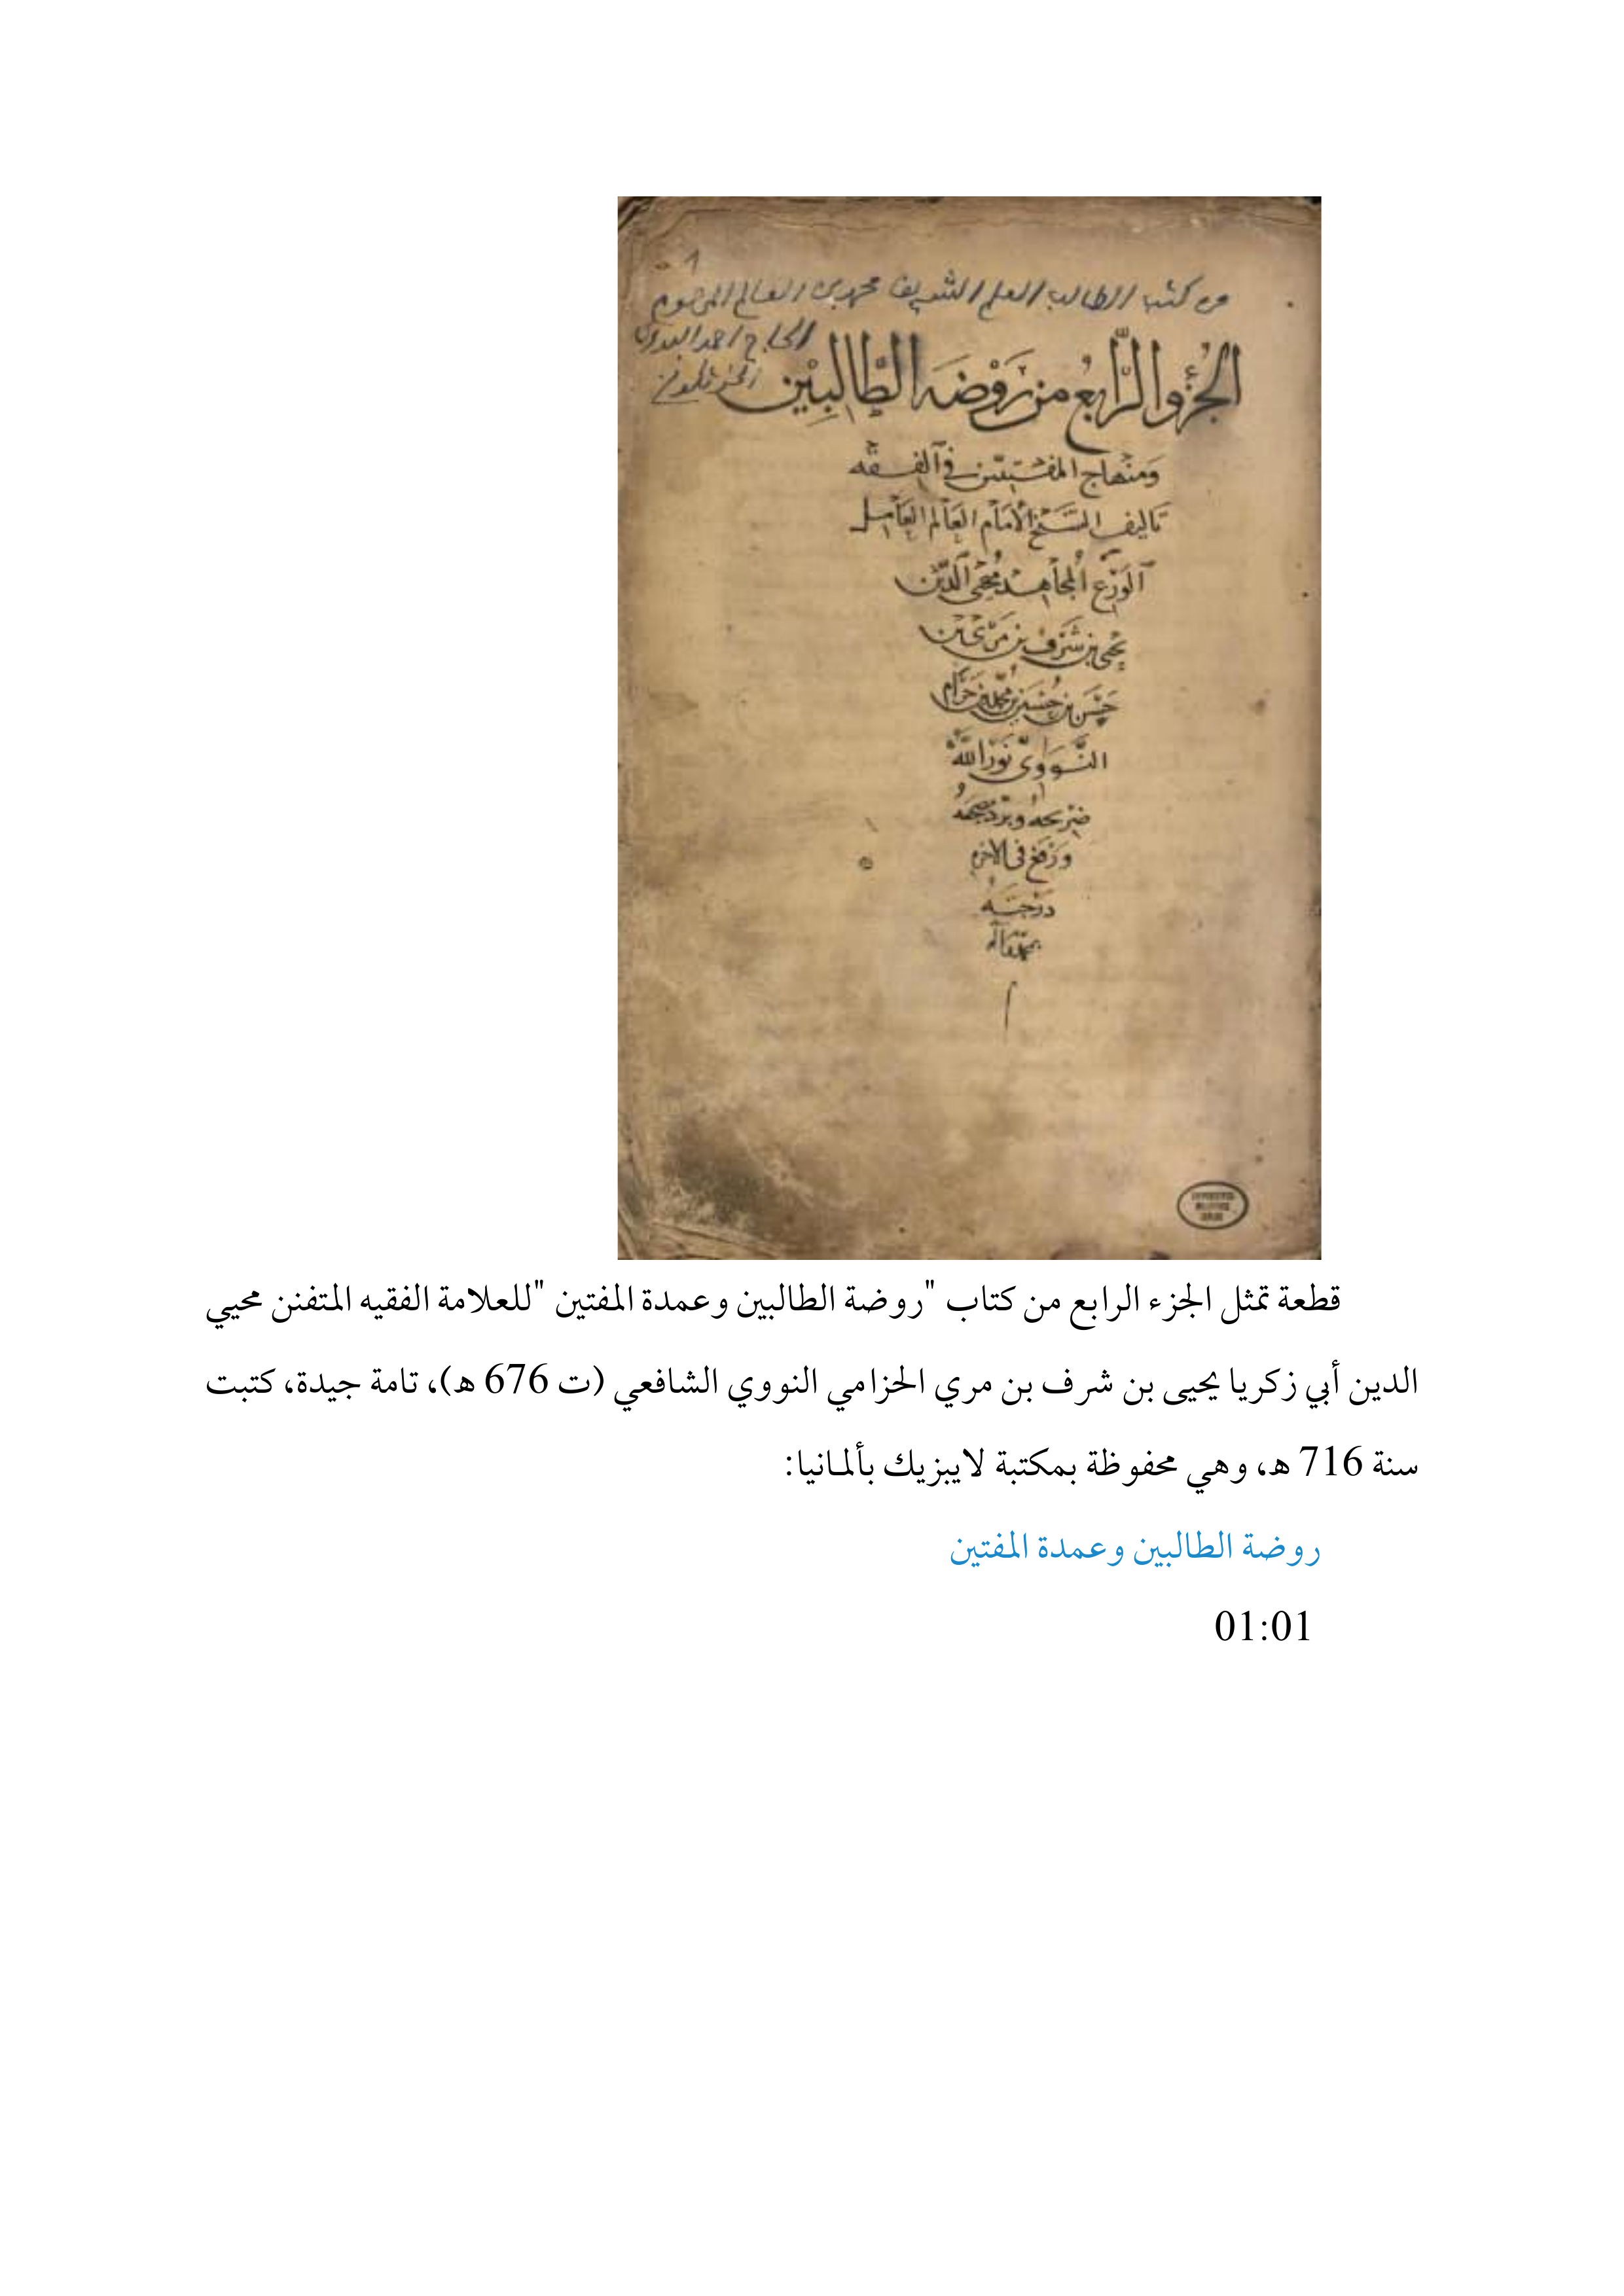 من كتب الطالب العلم الشريف محمد بن العالم المرحوم
الحاج احمد البدوي
الجزو الرابع من روضة الطالبين
ومنهاج المفتيين في الفقه
تاليف الشيخ الامام العالم العامل
الورع المجاهد محيى الدين
يحيى بن شرف بن مرى بن
حسن بن حسين بن محمد بن حزام
النووى نور الله
ضريحه وبرد مضجعه
ورفع فى الاخرة
درجته
بمحمد وآله
قطعة تمثل الجزء الرابع من كتاب "روضة الطالبين وعمدة المفتين "للعلامة الفقيه المتفنن محيي
الدين أبي زكريا يحيى بن شرف بن مري الحزامي النووي الشافعي (ت 676 ه)، تامة جيدة، كتبت
سنة 716 ه، وهي محفوظة بمكتبة لايبزيك بألمانيا:
روضة الطالبين وعمدة المفتين
01:01